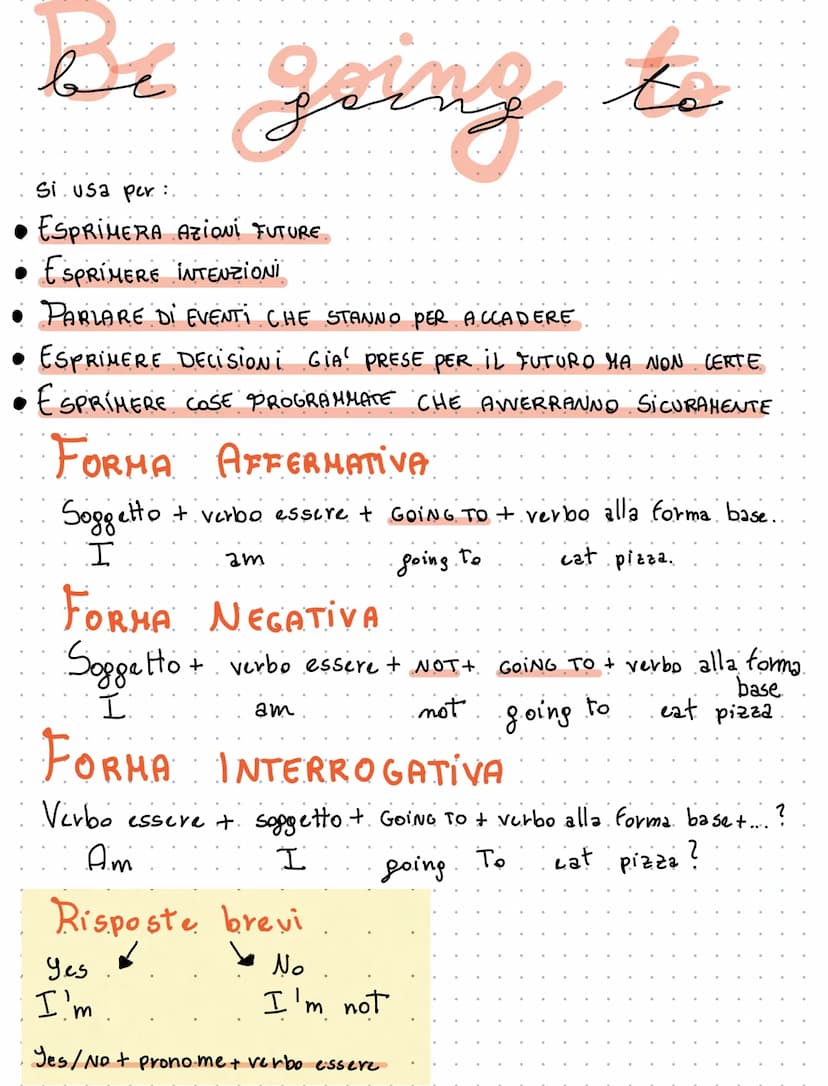 Be going to
be going to
si usa per:
• ESPRIMERA AZIONI FUTURE
• ESPRIMERE INTENZIONI
• PARLARE DI EVENTI CHE STANNO PER ACCADERE
• ESPRIMERE DECISIONI GIA' PRESE PER IL FUTURO MA NON CERTE
• ESPRIMERE COSE PROGRAMMATE CHE AVVERRANNO SICURAMENTE
FORMA AFFERMATIVA
Soggetto + verbo essere + GOING TO + verbo alla forma base.
I am going to eat pizza.
FORMA NEGATIVA
Soggetto + verbo essere + NOT + GOING TO + verbo alla forma
base
I am not going to eat pizza
FORMA INTERROGATIVA
Verbo essere + soggetto + GOING TO + verbo alla forma base + ...?
Am I going To eat pizza?
Risposte brevi
Yes No
I'm I'm not
Yes/No + pronome + verbo essere